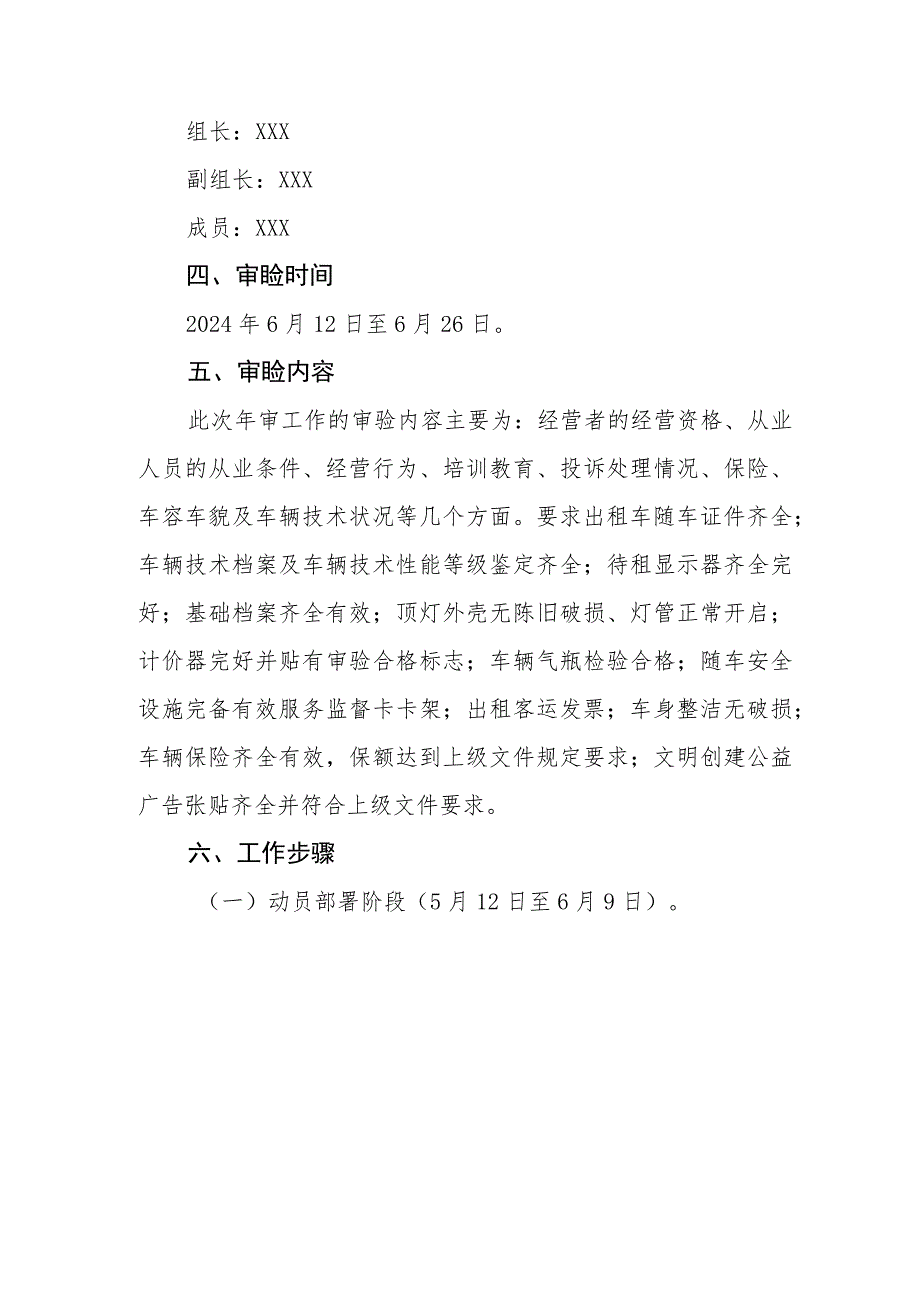 组长：XXX
副组长：XXX
成员：XXX
四、审睑时间
2024 年 6 月 12 日至 6 月 26 日。
五、审睑内容
此次年审工作的审验内容主要为：经营者的经营资格、从业
人员的从业条件、经营行为、培训教育、投诉处理情况、保险、
车容车貌及车辆技术状况等几个方面。要求出租车随车证件齐全；
车辆技术档案及车辆技术性能等级鉴定齐全；待租显示器齐全完
好；基础档案齐全有效；顶灯外壳无陈旧破损、灯管正常开启；
计价器完好并贴有审验合格标志；车辆气瓶检验合格；随车安全
设施完备有效服务监督卡卡架；出租客运发票；车身整洁无破损；
车辆保险齐全有效，保额达到上级文件规定要求；文明创建公益
广告张贴齐全并符合上级文件要求。
六、工作步骤
（一）动员部署阶段（5 月 12 日至 6 月 9 日）。